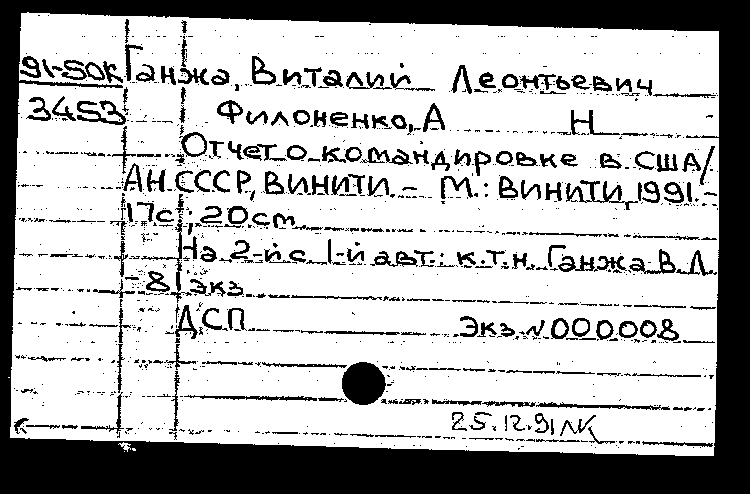 91-50К Ганжа, Виталий Леонтьевич
3453 Филоненко, А Н
Отчет о командировке в США/
АН СССР, ВИНИТИ. - М.: ВИНИТИ, 1991.-
17с ; 20см
На 2-й с 1-й авт.: к.т.н. Ганжа В.Л.
- 81 экз
ДСП Экз. №000008
25.12.91 ЛК